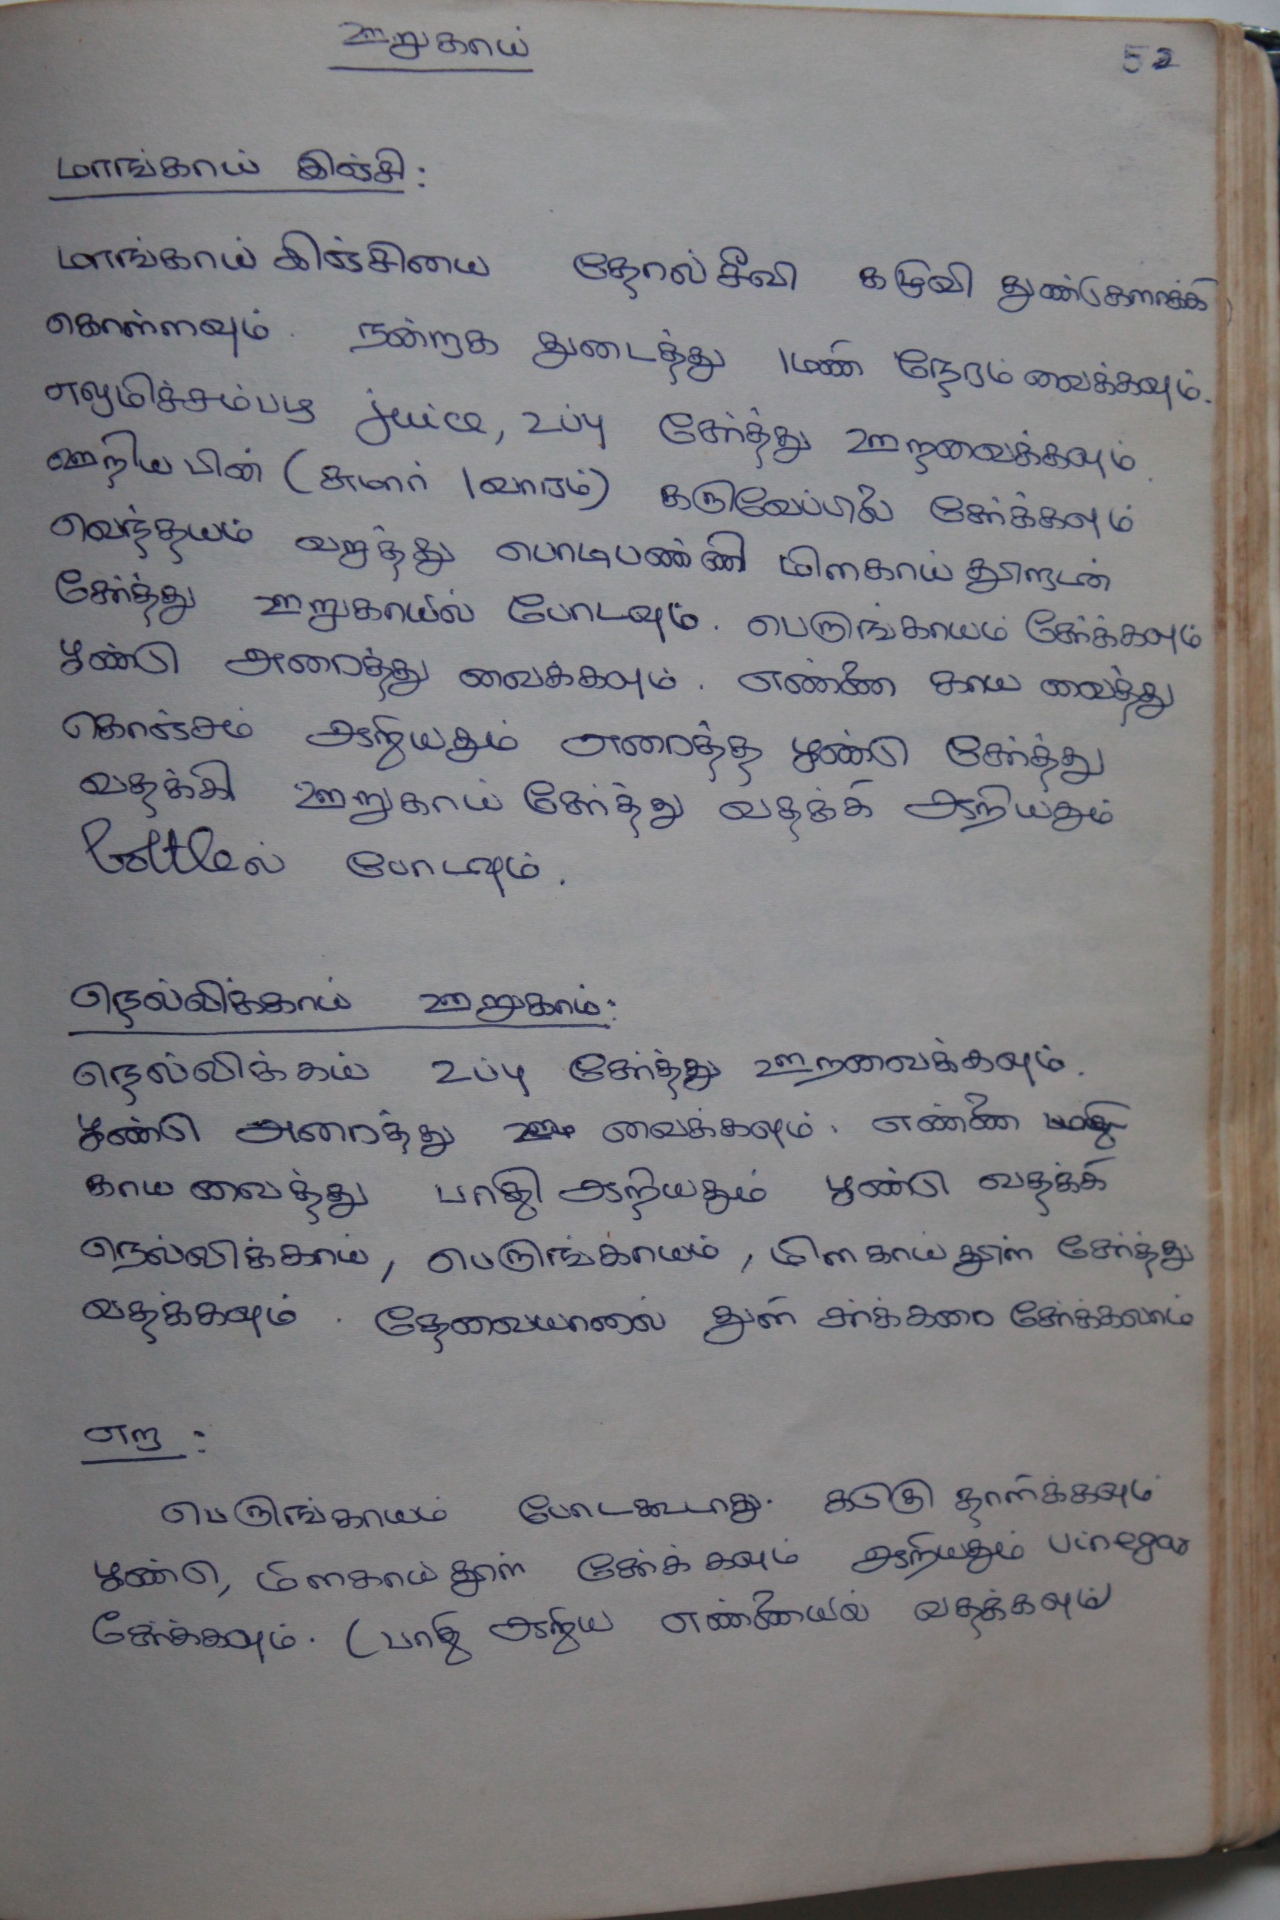 ஊறுகாய்
52
மாங்காய் இஞ்சி:
மாங்காய் இஞ்சியை தோல்சீவி கழுவி துண்டுகளாக்கி
கொள்ளவும். நன்றாக துடைத்து 1மணி நேரம் வைக்கவும்.
எலுமிச்சம்பழ juice, உப்பு சேர்த்து ஊறவைக்கவும்.
ஊறிய பின் (சுமார் 1வாரம்) கருவேப்பிலை சேர்க்கவும்
வெந்தயம் வறுத்து பொடிபண்ணி மிளகாய் தூளுடன்
சேர்த்து ஊறுகாயில் போடவும். பெருங்காயம் சேர்க்கவும்
பூண்டு அரைத்து வைக்கவும். எண்ணை காய வைத்து
கொஞ்சம் ஆறியதும் அரைத்த பூண்டு சேர்த்து
வதக்கி ஊறுகாய் சேர்த்து வதக்கி ஆறியதும்
bottleல் போடவும்.
நெல்லிக்காய் ஊறுகாய்:
நெல்லிக்காய் உப்பு சேர்த்து ஊறவைக்கவும்.
பூண்டு அரைத்து வைக்கவும். எண்ணை
காய வைத்து பாதி ஆறியதும் பூண்டு வதக்கி
நெல்லிக்காய், பெருங்காயம், மிளகாய் தூள் சேர்த்து
வதக்கவும். தேவையானால் தூள் சர்க்கரை சேர்க்கலாம்
எற :
பெருங்காயம் போடகூடாது. கடுகு தாளிக்கவும்
பூண்டு, மிளகாய் தூள் சேர்க்கவும் ஆறியதும்
சேர்க்கவும். (பாதி ஆறிய எண்ணையில் வதக்கவும்